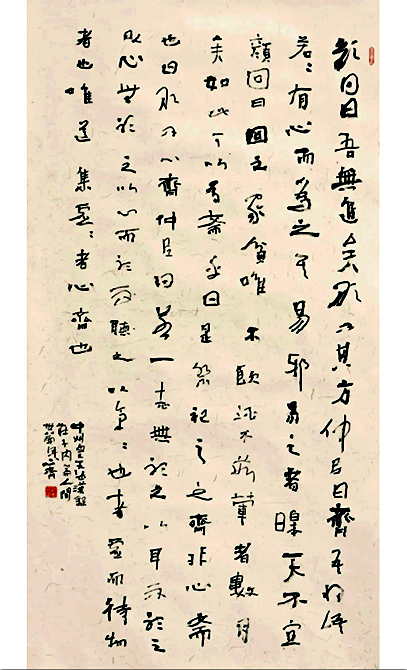 顏回曰吾無進矣敢問其方仲尼曰齊吾將語
若〻有心而為之其易邪易之者暤天不宜
顏回曰回之家貧唯不飲酒不茹葷者數月
矣如此可以為齋乎曰是祭祀之齊非心齋
也曰敢問心齊仲尼曰若一志無聽之以耳而聽之
以心無聽之以心而聽之以氣〻也者虛而待物
者也唯道集虛〻者心齊也
莊子內篇人間